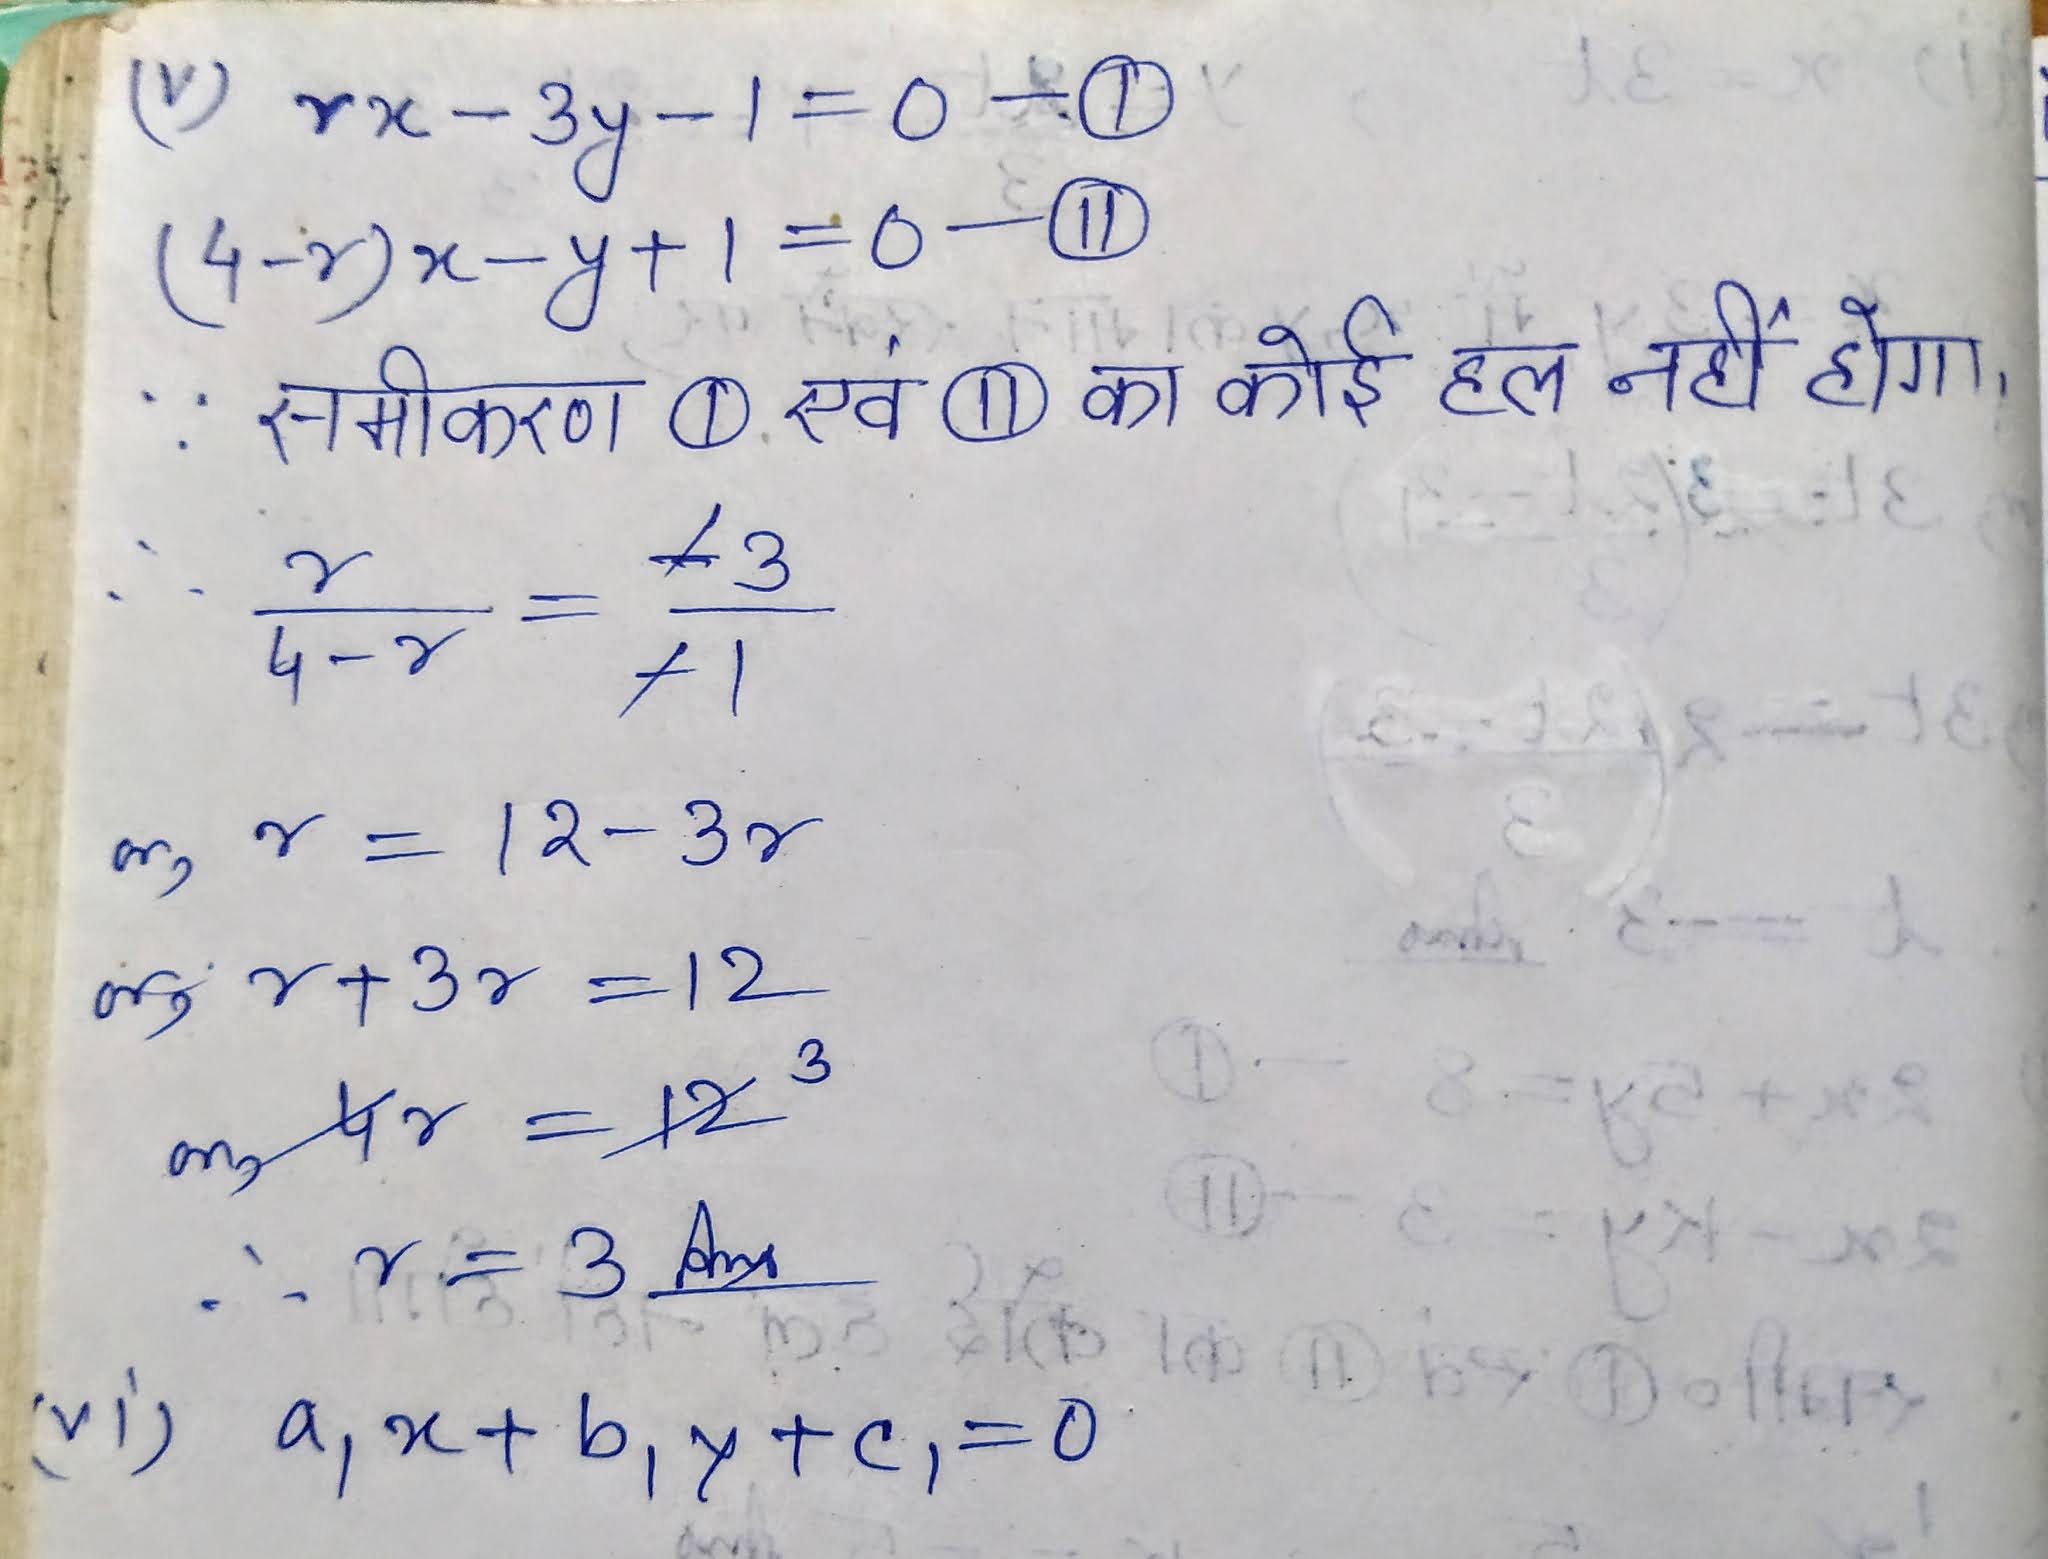 (v) rx - 3y - 1 = 0 — (I)
(4-r)x - y + 1 = 0 — (II)
∵ समीकरण (I) एवं (II) का कोई हल नहीं होगा,
∴ r/(4-r) = -3/-1
or, r = 12 - 3r
or, r + 3r = 12
or, 4r = 12 3
∴ r = 3 Ans
(vi) a₁x + b₁y + c₁ = 0